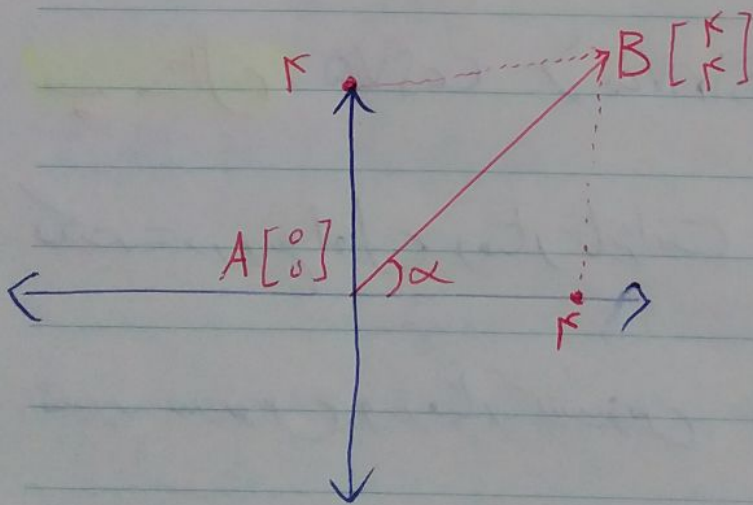 ۲
B [۲
۲]
A [۰
۰]
α
۲